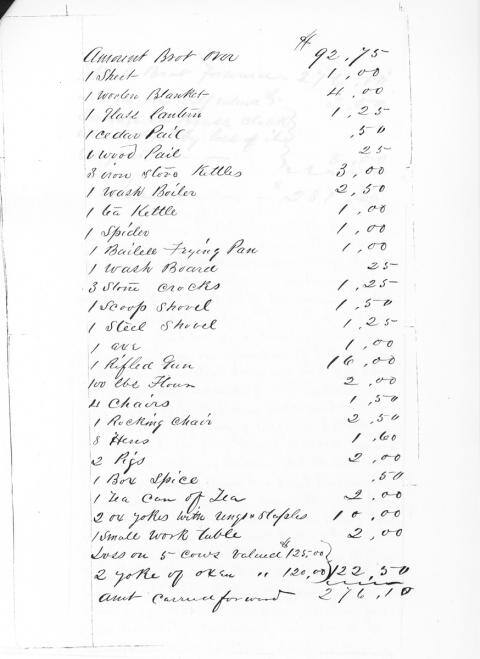 Amount Brot over $ 92,75
1 Sheet 1,00
1 woolen Blanket 4,00
1 Glass lantern 1,25
1 cedar Pail ,50
1 wood Pail 25
3 iron stove Kettles 3,00
1 wash Boiler 2,50
1 tea Kettle 1,00
1 Spider 1,00
1 Bailed Frying Pan 1,00
1 wash Board 25
3 Stone Crocks 1,25
1 Scoop Shovel 1,50
1 Steel Shovel 1,25
1 axe 1,00
1 Rifled Gun 16,00
100 lbs Flour 2,00
4 Chairs 1,50
1 Rocking Chair 2,50
8 Hens 1,60
2 Pigs 2,00
1 Box Spice ,50
1 Tea Can of Tea 2,00
2 ox yokes with rings & Staples 10,00
1 Small work table 2,00
Loss on 5 cows valued $125,00
2 yoke of oxen " 120,00 } 122,50
Amt carried forward 276,10